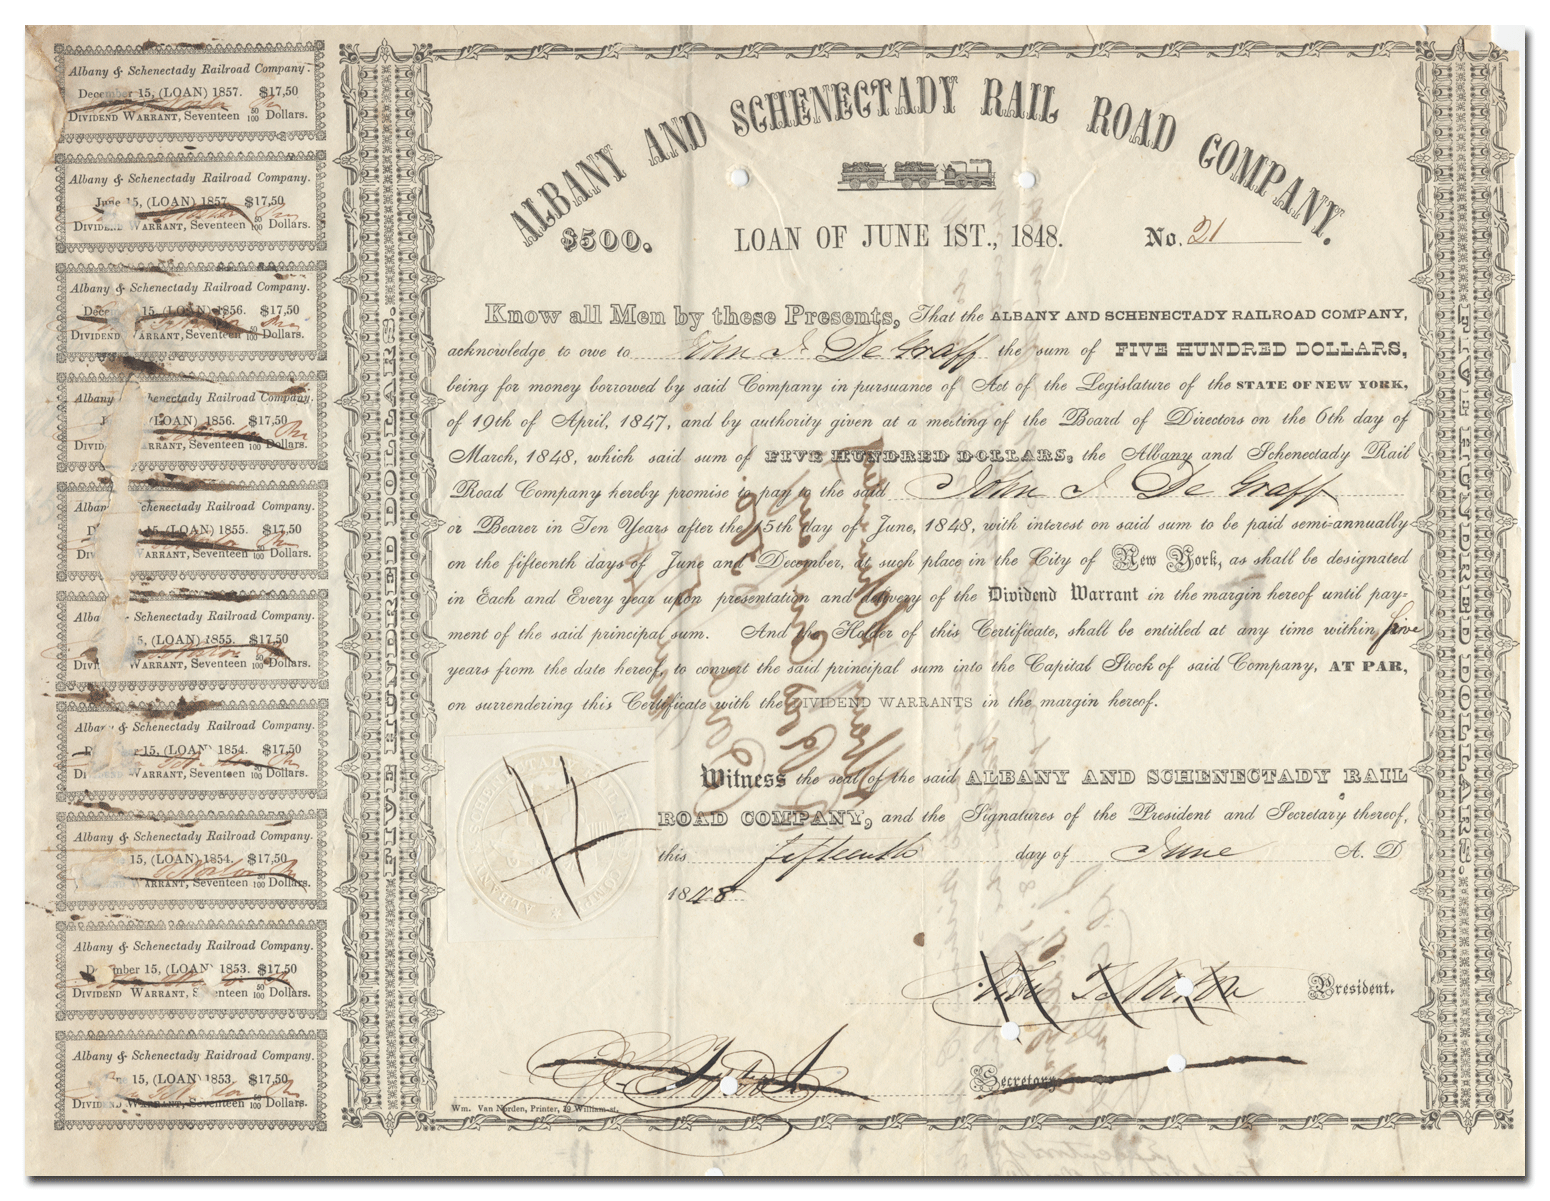 Albany & Schenectady Railroad Company.
December 15, (LOAN) 1857. $17,50
DIVIDEND WARRANT, Seventeen 50/100 Dollars.
Albany & Schenectady Railroad Company.
June 15, (LOAN) 1857. $17,50
DIVIDEND WARRANT, Seventeen 50/100 Dollars.
Albany & Schenectady Railroad Company.
15, (LOAN) 1856. $17,50
DIVIDEND WARRANT, Seventeen 50/100 Dollars.
Albany Schenectady Railroad Company.
(LOAN) 1856. $17,50
WARRANT, Seventeen 50/100 Dollars.
Schenectady Railroad Company.
15, (LOAN) 1855. $17,50
WARRANT, Seventeen 50/100 Dollars.
Schenectady Railroad Company.
15, (LOAN) 1855. $17,50
WARRANT, Seventeen 50/100 Dollars.
Albany & Schenectady Railroad Company.
15, (LOAN) 1854. $17,50
WARRANT, Seventeen 50/100 Dollars.
Albany & Schenectady Railroad Company.
15, (LOAN) 1854. $17,50
WARRANT, Seventeen 50/100 Dollars.
Albany & Schenectady Railroad Company.
15, (LOAN) 1853. $17,50
DIVIDEND WARRANT, Seventeen 50/100 Dollars.
Albany & Schenectady Raidroad Company.
15, (LOAN) 1853. $17,50
DIVIDEND WARRANT, Seventeen 50/100 Dollars.
FIVE HUNDRED DOLLARS.
ALBANY AND SCHENECTADY RAIL ROAD COMPANY.
$500. LOAN OF JUNE 1ST., 1848. No. 21
Know all Men by these Presents, That the ALBANY AND SCHENECTADY RAILROAD COMPANY,
acknowledge to owe to John I. De Graff the sum of FIVE HUNDRED DOLLARS,
being for money borrowed by said Company in pursuance of Act of the Legislature of the STATE OF NEW YORK,
of 19th of April, 1847, and by authority given at a meeting of the Board of Directors on the 6th day of
March, 1848, which said sum of FIVE HUNDRED DOLLARS, the Albany and Schenectady Rail
Road Company hereby promise to pay to the said John I De Graff
or Bearer in Ten Years after the 15th day of June, 1848, with interest on said sum to be paid semi-annually
on the fifteenth days of June and December, at such place in the City of New York, as shall be designated
in Each and Every year upon presentation and delivery of the Dividend Warrant in the margin hereof until pay-
ment of the said principal sum. And the Holder of this Certificate, shall be entitled at any time within five
years from the date hereof, to convert the said principal sum into the Capital Stock of said Company, AT PAR,
on surrendering this Certificate with the DIVIDEND WARRANTS in the margin hereof.
Witness the seal of the said ALBANY AND SCHENECTADY RAIL
ROAD COMPANY, and the Signatures of the President and Secretary thereof,
this fifteenth day of June A. D
1848
President.
Secretary
Wm. Van Norden, Printer, 39 William-st.
FIVE HUNDRED DOLLARS.